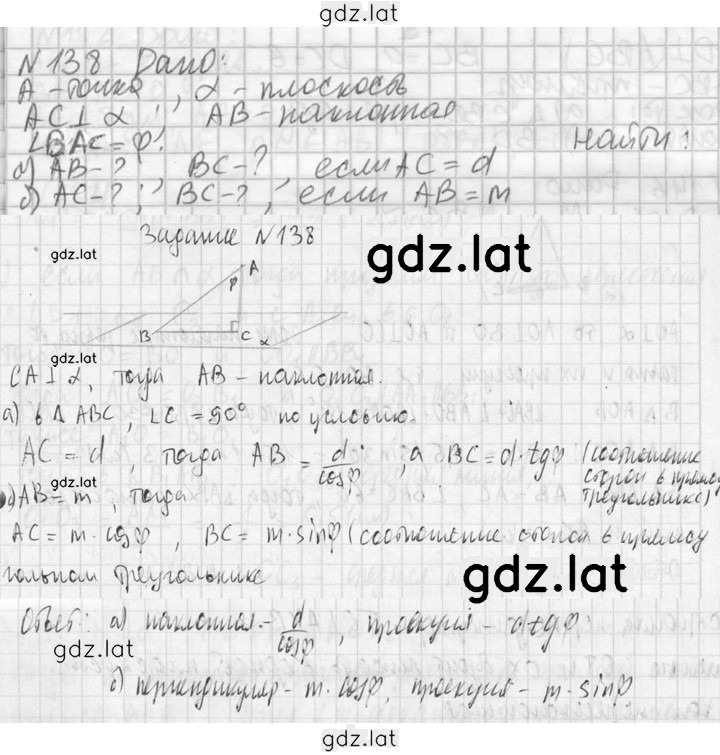 gdz.lat
N 138 Дано:
A - точка, α - плоскость
AC ⊥ α, AB - наклонная
∠BAC = φ. Найти:
а) AB - ?, BC - ?, если AC = d
б) AC - ?, BC - ?, если AB = m
Задание N 138
gdz.lat
gdz.lat
A
φ
B
C
α
gdz.lat
CA ⊥ α, тогда AB - наклонная.
а) в Δ ABC, ∠C = 90° по условию.
AC = d, тогда AB = d/cosφ, а BC = d·tgφ (соотношение
сторон в прямоу
треугольнике)
gdz.lat
б) AB = m, тогда
AC = m·cosφ, BC = m·sinφ (соотношение сторон в прямоу
гольном треугольнике
gdz.lat
Ответ: а) наклонная - d/cosφ, проекция - d tgφ
gdz.lat
б) перпендикуляр - m·cosφ, проекция - m·sinφ
gdz.lat